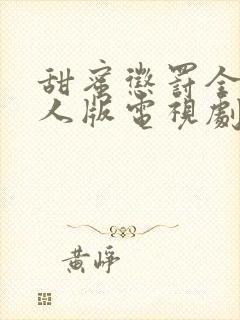 甜蜜懲罰全
人版電視劇
黃崢